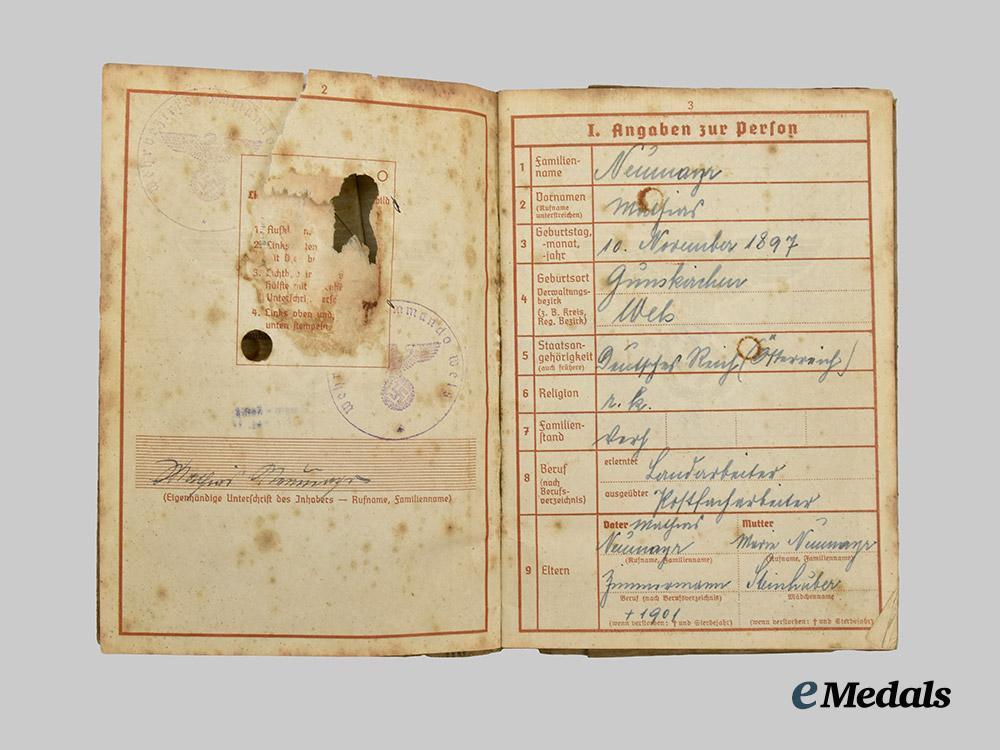 2
bild
1. Aufkl
2. Links
3. Lichtb
Hälfte mit
Unterschri
4. Links oben und
unten stempeln
mmando Wels
Mathias Neumayr
(Eigenhändige Unterschrift des Inhabers — Rufname, Familienname)
3
I. Angaben zur Person
1 Familien-
name
Neumayr
2 Vornamen
(Rufname
unterstreichen)
Mathias
3 Geburtstag,
-monat,
-jahr
10. November 1897
4 Geburtsort
Verwaltungs-
bezirk
(z. B. Kreis,
Reg. Bezirk)
Gunskirchen
Wels
5 Staatsan-
gehörigkeit
(auch frühere)
Deutsches Reich (Österreich)
6 Religion
r. k.
7 Familien-
stand
verh
8 Beruf
(nach
Berufs-
verzeichnis)
erlernter Landarbeiter
ausgeübter Postfacharbeiter
9 Eltern
Vater Mathias
Neumayr
(Rufname, Familienname)
Zimmermann
Beruf (nach Berufsverzeichnis)
† 1901
(wenn verstorben: † und Sterbejahr)
Mutter
Marie Neumayr
(Rufname, Familienname)
Steinhuber
Mädchenname
(wenn verstorben: † und Sterbejahr)
eMedals